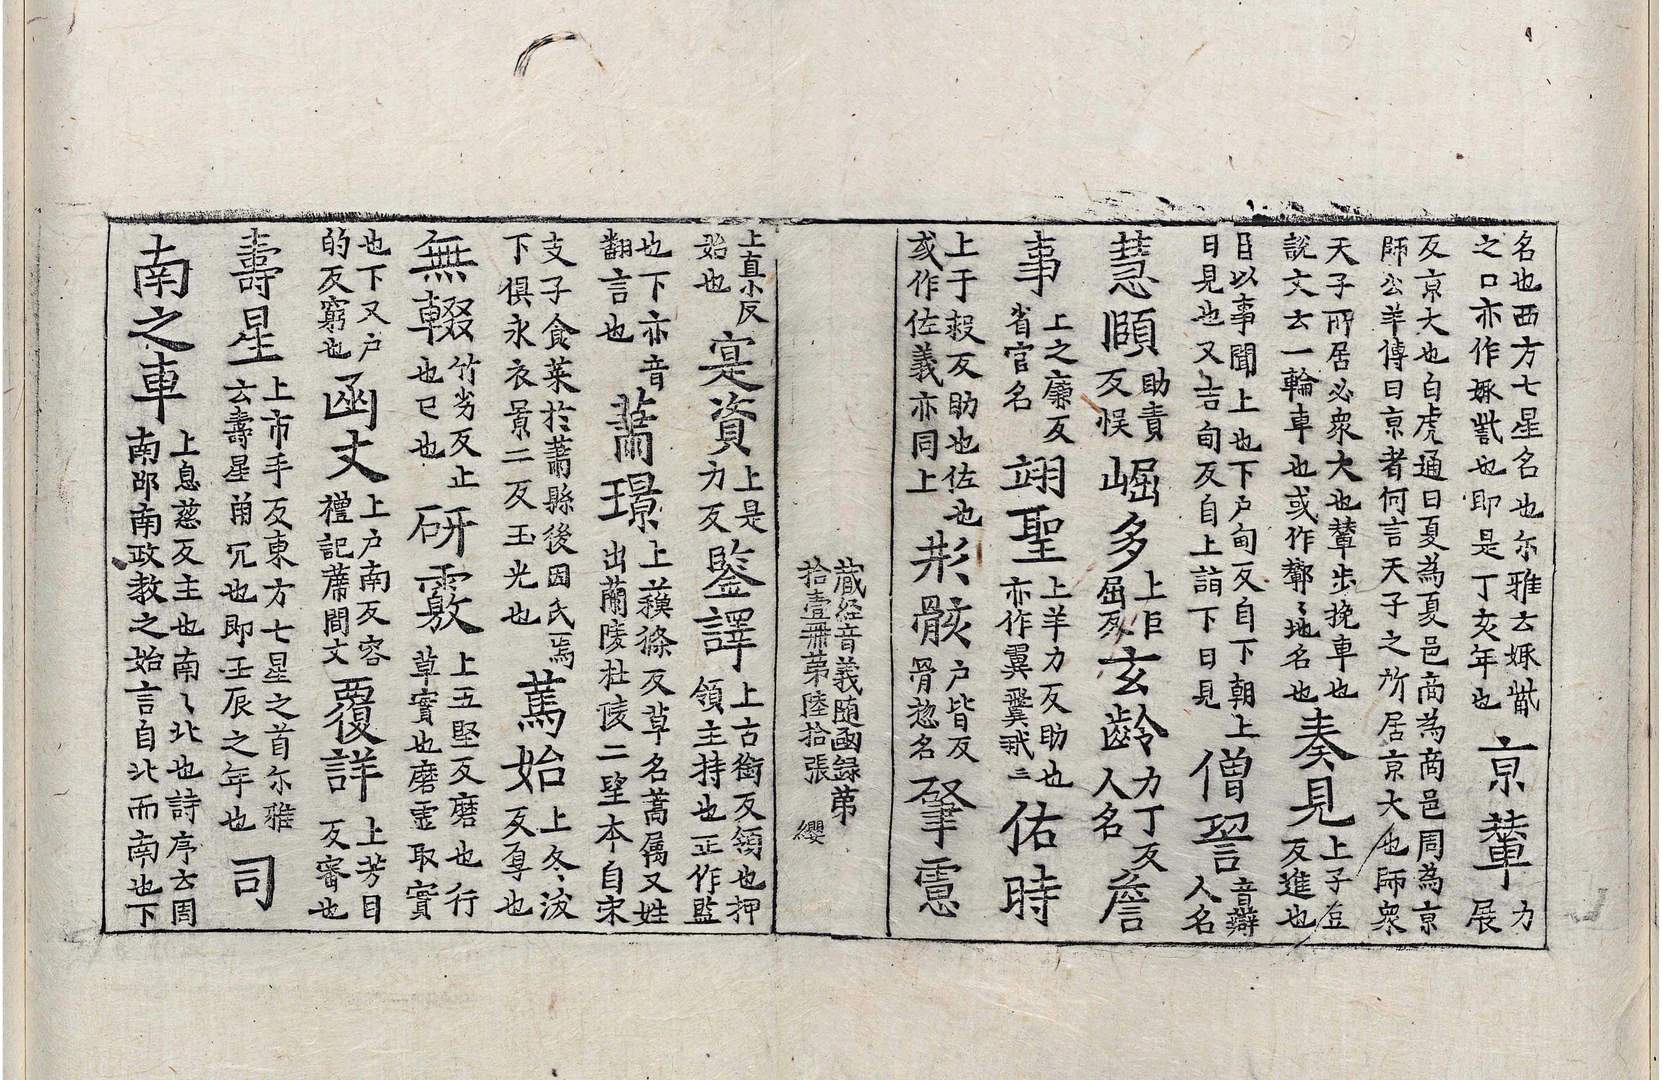 名也西方七星名也尓雅云娵觜
之口亦作娵㰣也即是丁亥年也
京輦
力
展
反京大也白虎通曰夏為夏邑商為商邑周為京
師公羊傳曰京者何言天子之所居京大也師衆
天子所居必衆大也輦步挽車也
說文云一輪車也或作鄻〻地名也
奏見
上子豆
反進也
目以事聞上也下戶甸反自下朝上
日見也又吉甸反自上詣下日見
僧䛒
音辯
人名
慧頤
助責
反悮
崛多
上巨
屈反
玄齡
力丁反
人名
詹
事
上之廉反
省官名
翊聖
上羊力反助也
亦作翼
三
佑時
上于救反助也佐也
或作佐義亦同上
形骸
戶皆反
骨惣名
肇慮
藏経音義随函録苐
拾壹冊苐陸拾張
纓
上直小反
始也
寔資
上是
力反
鑒譯
上古銜反領也押
領主持也正作監
也下亦音
翻言也
蕭璟
上蘓條反草名蒿属又姓
出蘭陵杜陵二望本自宋
支子食菜於蕭縣後因氏焉
下俱永衣景二反玉光也
蔿始
上冬沷
反厚也
無輟
竹劣反止
也已也
研覈
上五堅反磨也行
草實也磨霊取實
也下又戶
的反窮也
函丈
上戶南反容
禮記蓆間丈
覆詳
上芳目
反審也
壽星
上市手反東方七星之首尓雅
云壽星角冗也即壬辰之年也
司
南之車
上息慈反主也南〻北也詩序云周
南邵南政教之始言自北而南也下